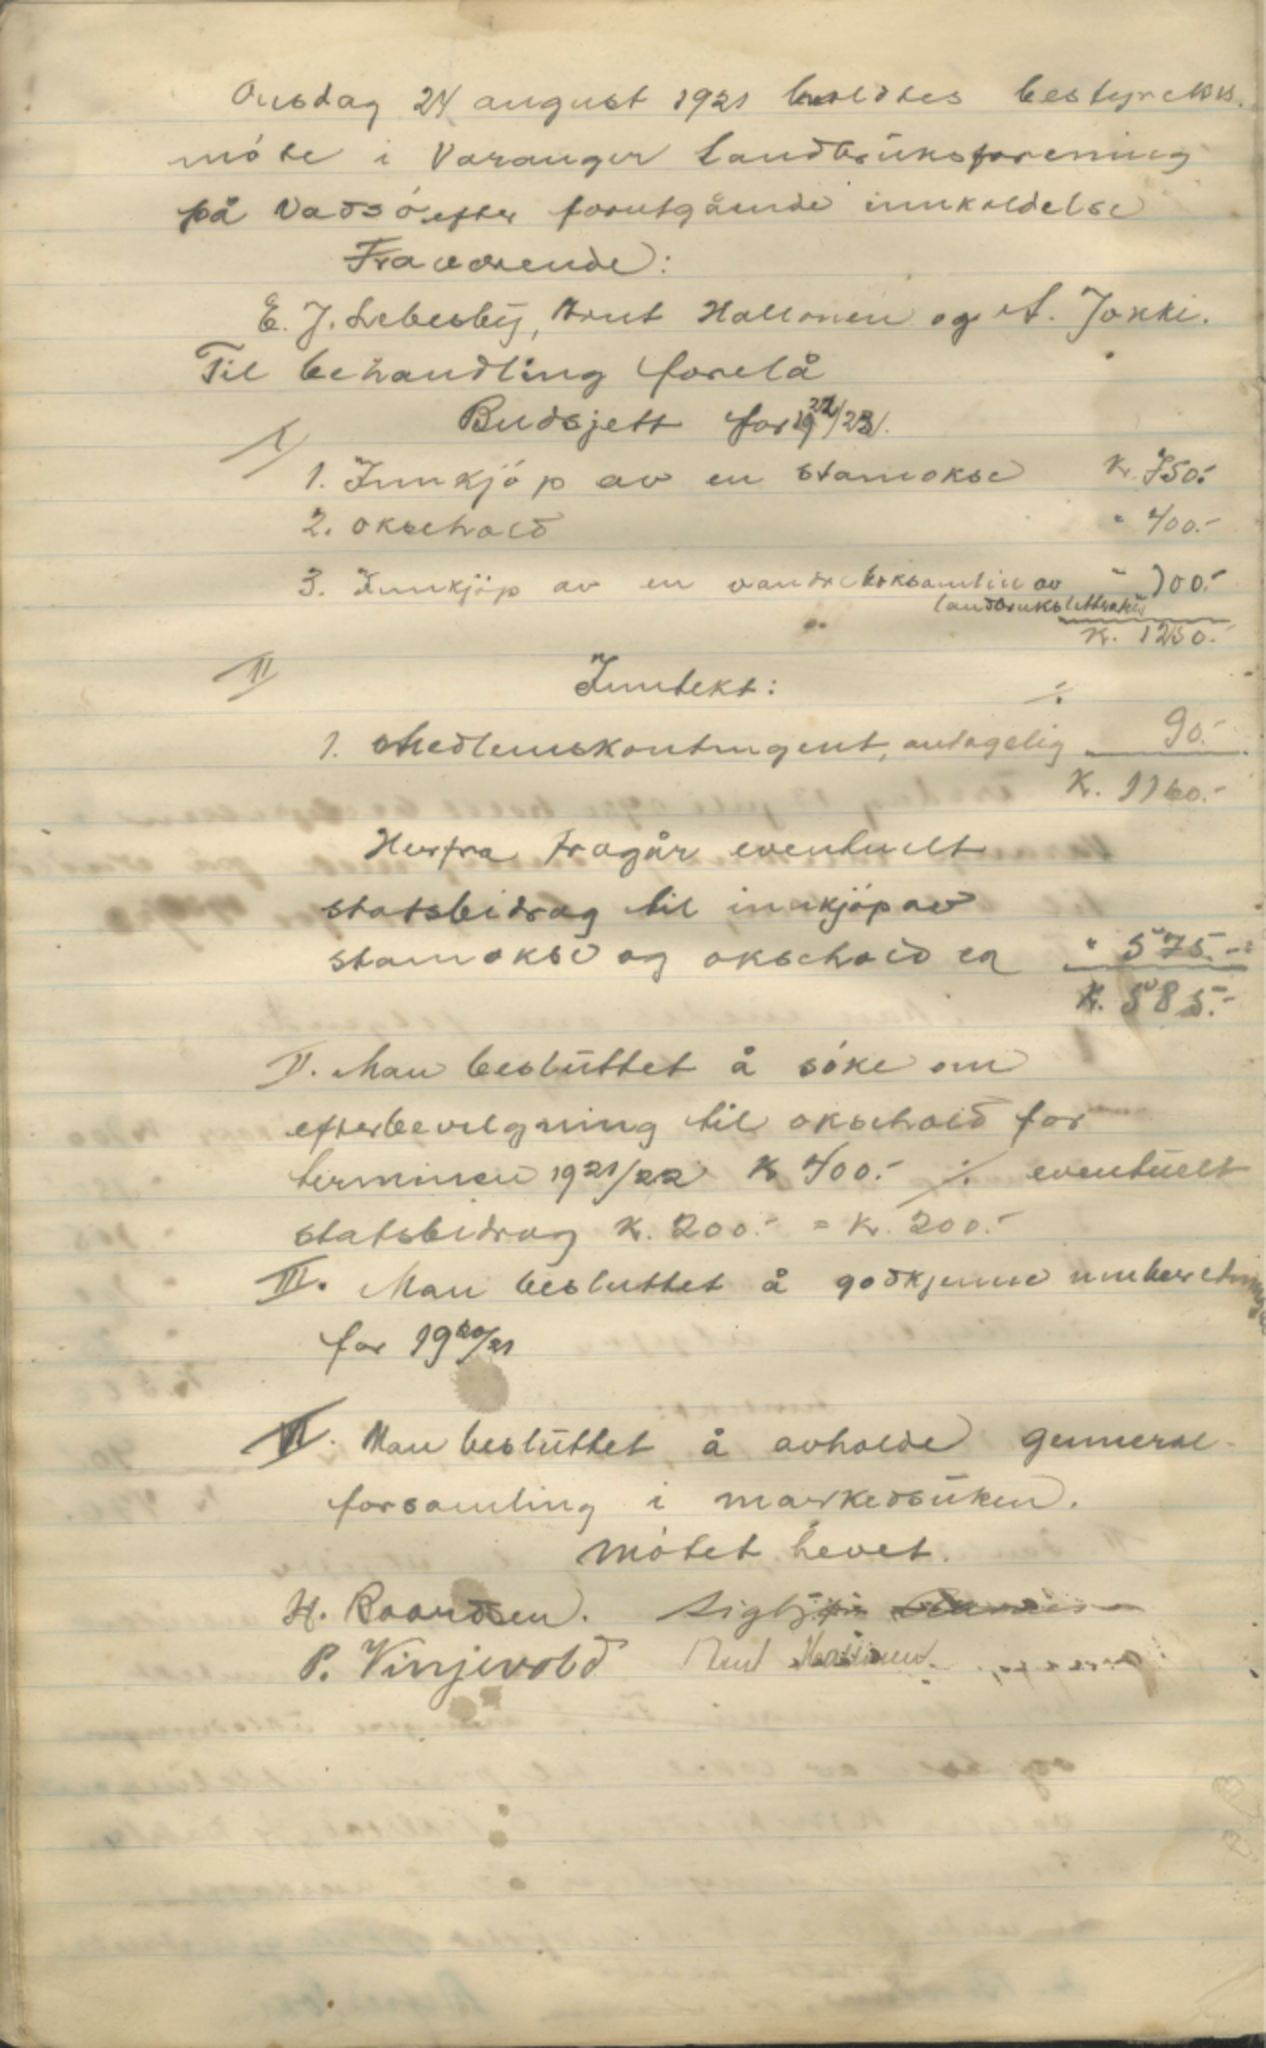 Onsdag 24 august 1921 holdtes bestyrelses.
möte i Varanger landbruksforening
på Vadsö efter forutgående innkaldelse
Fraværende:
E. J. Lebesby, Knut Hallonen og A. Jokki.
Til behandling forelå
Budsjett for 1922/23.
I
1. Innkjöp av en stamokse K. 750.-
2. oksehold " 400.-
3. Innkjöp av en vandreboksamlin av " 100.-
landbrukslitteratur
K. 1250.-
II Inntekt: ./.
1. Medlemskontingent, antagelig 90.-
K. 1160.-
Herfra fragår eventuelt
statsbidrag til innkjöp av
stamokse og oksehold ca " 575.-
K. 585.-
II. Man besluttet å söke om
efterbevilgning til oksehold for
terminen 1921/22 K 400.- ./. eventuelt
statsbidrag K. 200.- = K. 200.-
III. Man besluttet å godkjenne innberetningen
for 1920/21
VI. Man besluttet å avholde genneral-
forsamling i markedsuken.
Mötet hevet.
H. Baardsen. Sigbjörn
P. Vinjevold Knut